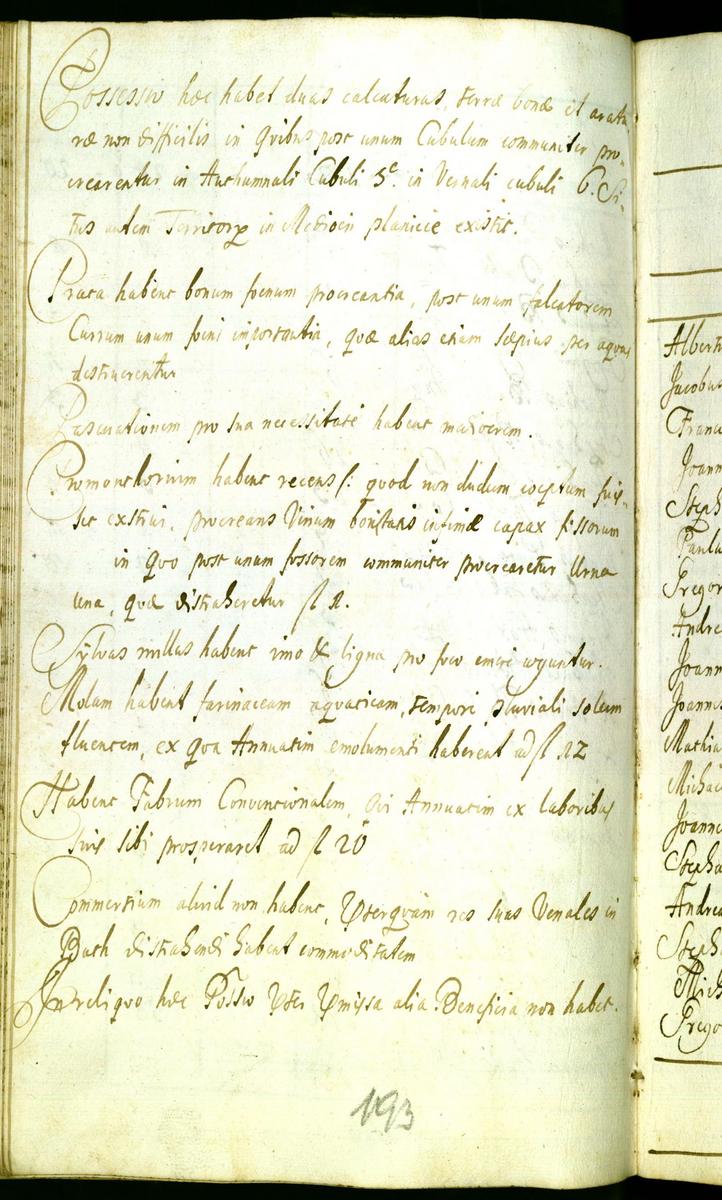 Possessio hæc habet duas calcaturas, terræ bonæ et aratu
ræ non difficilis in qvibus post unum Cubulum communiter pro-
crearentur in Authumnali Cubuli 5. in Vernali cubuli 6. Si-
tus autem Territory in Mediocri planicie existit.
Prata habent bonum foenum procreantia, post unum falcatorem
Currum unum foeni importantia, quæ alias etiam sæpius per aquas
destruerentur
Pascuationem pro sua necessitate habent mediocrem.
Promonthorium habent recens /: quod non dudum coeptum fuis-
set exstrui, procreans Vinum bonitatis infimæ capax fossorum
in quo post unum fossorem communiter procrearetur Urna
una, quæ distraheretur fl 1.
Sylvas nullas habent imo & ligna pro foco emere coguntur.
Molam habent farinaceam aquaticam, tempori pluviali solum
fluentem, ex qva Annuatim emolumenti haberent ad fl 12
Habent Fabrum Conventionalem, qvi Annuatim ex laboribus
suis sibi prosperaret ad fl 20
Commertium aliud non habent, pterqvam res suas Venales in
Buth distrahendi habent commoditatem
In reliquo hæc Possio pter pmissa alia Beneficia non habet.
193
Albert
Jacobus
Franc
Joann
Steph
Paulu
Gregor
Andre
Joann
Joannes
Mathia
Michae
Joanne
Stepha
Andrea
Steph
Mich
Grego